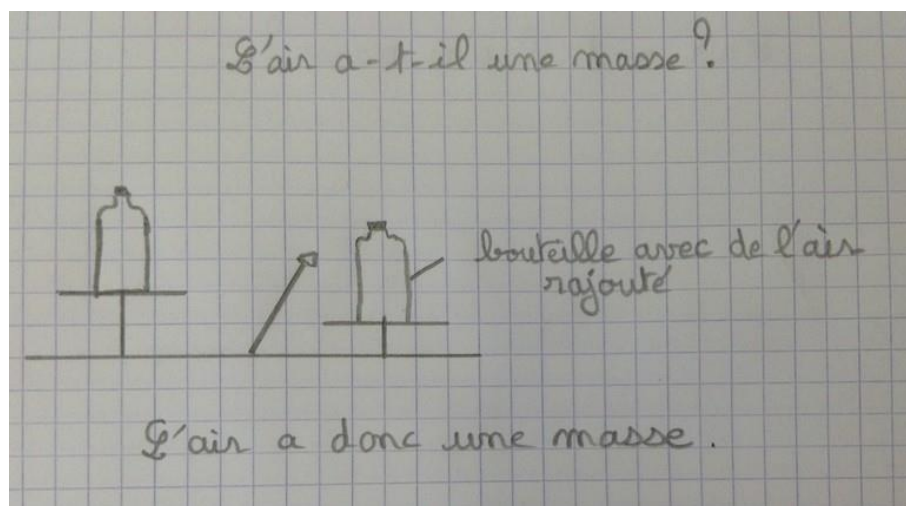 L'air a-t-il une masse ?
bouteille avec de l'air
rajouté
L'air a donc une masse.